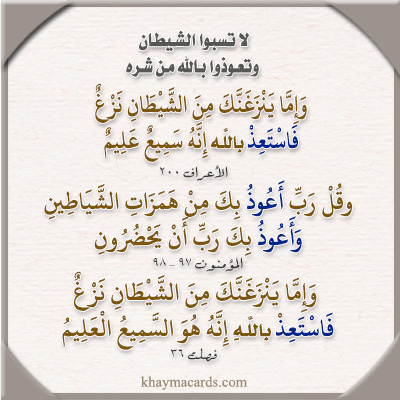 لا تسبوا الشيطان
وتعوذوا بالله من شره
وَإِمَّا يَنْزَغَنَّكَ مِنَ الشَّيْطَانِ نَزْغٌ
فَاسْتَعِذْ بِاللَّهِ إِنَّهُ سَمِيعٌ عَلِيمٌ
الأعراف ٢٠٠
وَقُلْ رَبِّ أَعُوذُ بِكَ مِنْ هَمَزَاتِ الشَّيَاطِينِ
وَأَعُوذُ بِكَ رَبِّ أَنْ يَحْضُرُونِ
المؤمنون ٩٧ - ٩٨
وَإِمَّا يَنْزَغَنَّكَ مِنَ الشَّيْطَانِ نَزْغٌ
فَاسْتَعِذْ بِاللَّهِ إِنَّهُ هُوَ السَّمِيعُ الْعَلِيمُ
فصلت ٣٦
khaymacards.com